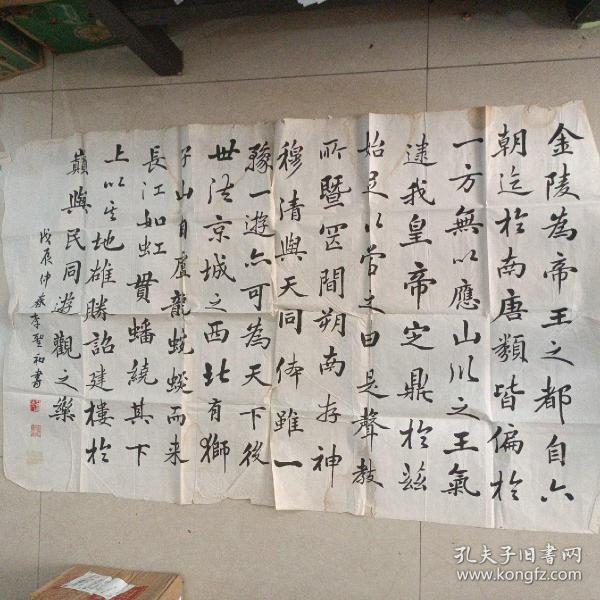 金陵為帝王之都自六
朝迄於南唐類皆偏於
一方無以應山川之王氣
逮我皇帝定鼎於茲
始足以當之由是聲教
所暨罔間朔南存神
穆清與天同体雖一
豫一遊亦可為天下後
世法京城之西北有獅
子山自盧龍蜿蜒而来
長江如虹貫蟠繞其下
上以其地雄勝詔建樓於
巔與民同遊觀之樂
戊辰仲 李聖和書
孔夫子旧书网
www.kongfz.com